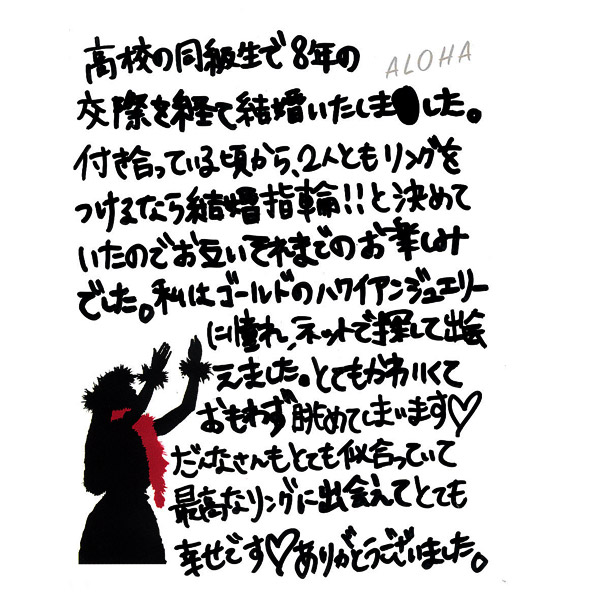 高校の同級生で8年の
ALOHA
交際を経て結婚いたしました。
付き合っている頃から、2人ともリングを
つけるなら結婚指輪!!と決めて
いたのでお互いそれまでのお楽しみ
でした。私はゴールドのハワイアンジュエリー
に憧れ、ネットで探して出会
えました。とてもかわいくて
おもわず眺めてしまいます♡
だんなさんもとても似合っていて
最高なリングに出会えてとても
幸せです♡ありがとうございました。